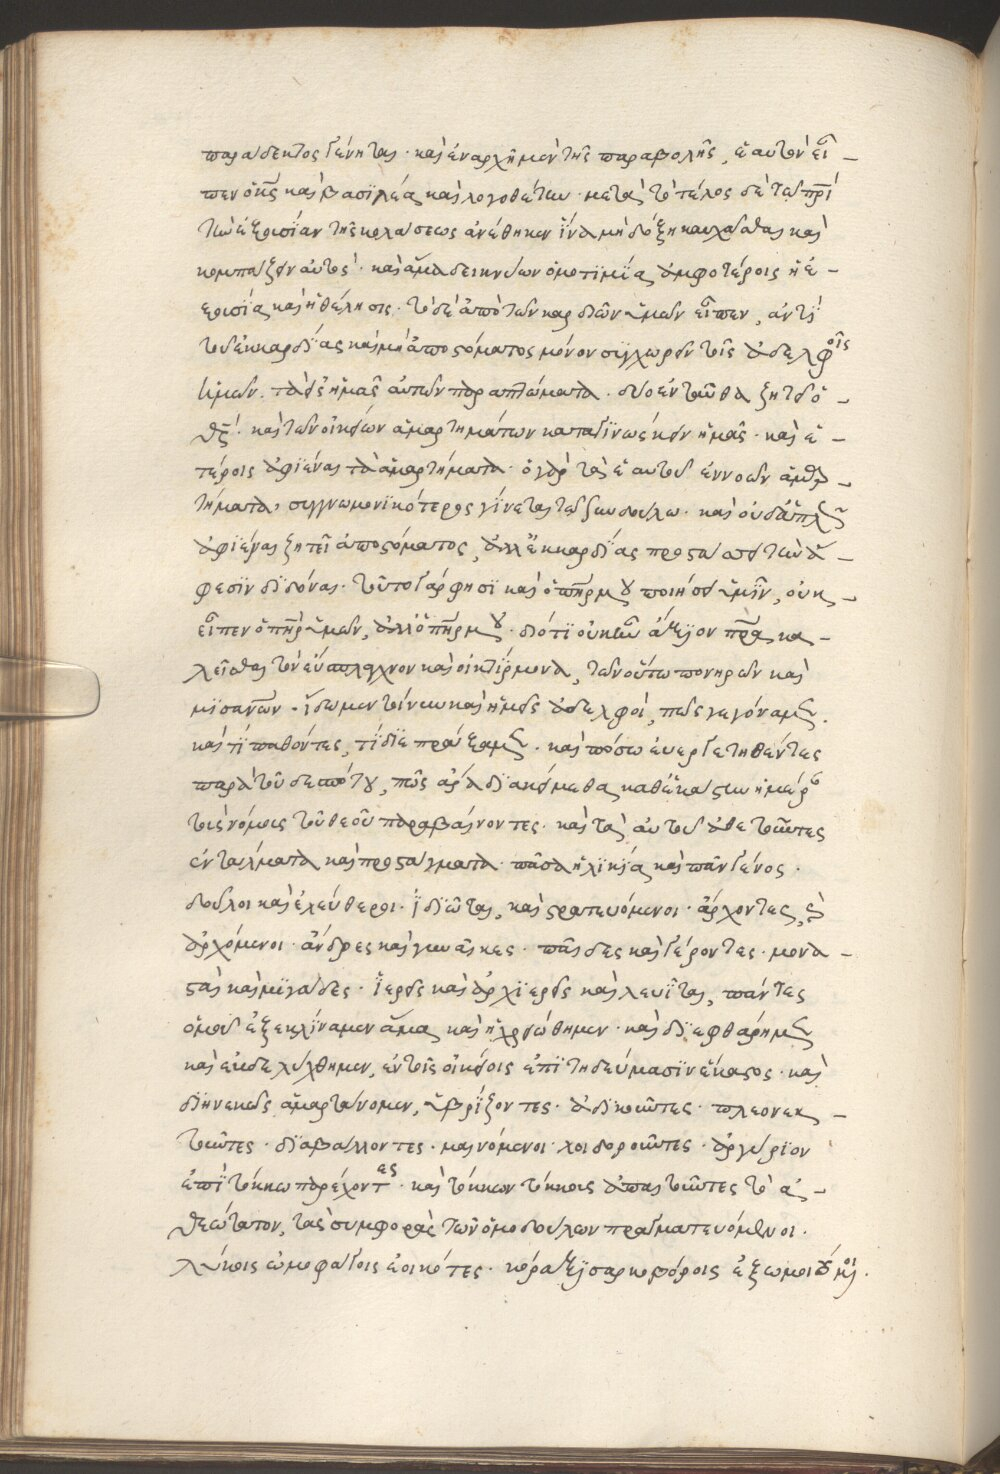 παραδεκτος γένηται· καὶ ἐν ἀρχῇ μὲν τῆς παραβολῆς, ἑαυτὸν εἶ-
πεν ὁ κ̅ς̅ καὶ βασιλέα καὶ λογοθέτην· μετὰ τὸ τέλος δὲ τῶ π̅ρ̅ι̅
τὴν ἐξουσίαν τῆς κολάσεως ἀνέθηκεν ἵνα μὴ δόξη καυχᾶσθαι καὶ
κομπάζειν αὐτός· καὶ ἅμα δεικνύων ὁμοτιμία ἀμφοτέροις ἡ ἐ-
ξουσία καὶ ἡ θέλησις· τὸ δὲ ἀπὸ τῶν καρδιῶν ὑμῶν εἶπεν, ἀντὶ
τοῦ ἐκ καρδίας καὶ μὴ ἀπὸ στόματος μόνον συγχωρεῖν τοῖς ἀδελφοῖς
ὑμῶν τὰ εἰς ἡμᾶς αὐτῶν παραπτώματα· δύο ἐνταῦθα ζητεῖ ὁ
θ̅ς̅· καὶ τῶν οἰκείων ἁμαρτημάτων καταγινώσκειν ἡμᾶς· καὶ ἑ-
τέροις ἀφιέναι τὰ ἁμαρτήματα· ὁ γὰρ τὰ ἑαυτοῦ ἐννοῶν ἁμαρ-
τήματα, συγγνωμονικότερος γίνεται τῶ συνδούλω· καὶ οὐδὲ ἁπλῶς
ἀφιέναι ζητεῖ ἀπὸ στόματος, ἀλλ' ἐκ καρδίας προστάσσει τὴν ἄ-
φεσιν διδόναι· τοῦτο γάρ φησι καὶ ὁ π̅η̅ρ̅ μου ποιήσει ὑμῖν, οὐκ
εἶπεν ὁ π̅η̅ρ̅ ὑμῶν, ἀλλ' ὁ π̅η̅ρ̅ μου· διότι οὐκ ἦν ἄξιον π̅ρ̅α̅ κα-
λεῖσθαι τὸν εὔσπλαγχνον καὶ οἰκτίρμονα, τῶν οὕτω πονηρῶν καὶ
μισανῶν· ἴδωμεν τοίνυν καὶ ἡμεῖς ἀδελφοὶ, πῶς γεγόναμεν.
καὶ τί παθόντες, τί διεπράξαμεν· καὶ πόσω εὐεργετηθέντες
παρὰ τοῦ δεσπότου, πῶς ἄρα διακείμεθα καθ' ἑκάστην ἡμέραν
τοὺς νόμους τοῦ θεοῦ παραβαίνοντες· καὶ τὰ αὐτοῦ ἀθετοῦντες
ἐντάλματα καὶ προστάγματα· πᾶσα ἡλικία καὶ πᾶν γένος·
δοῦλοι καὶ ἐλεύθεροι· ἰδιῶται, καὶ στρατευόμενοι· ἄρχοντες, καὶ
ἀρχόμενοι· ἄνδρες καὶ γυναῖκες· παῖδες καὶ γέροντες· μονα-
σταὶ καὶ μιγάδες· ἱερεῖς καὶ ἀρχιερεῖς καὶ λευῖται, πάντες
ὁμοῦ ἐξεκλίναμεν ἅμα καὶ ἠχρειώθημεν· καὶ διεφθάρημεν
καὶ ἐβδελύχθημεν, ἐν τοῖς οἰκείοις ἐπιτηδεύμασιν ἕκαστος· καὶ
διηνεκῶς ἁμαρτάνομεν, ὑβρίζοντες· ἀδικοῦντες· πλεονεκ-
τοῦντες· διαβάλλοντες· μαινόμενοι· λοιδοροῦντες· ἀργύριον
ἐπὶ τόκκω παρέχοντες· καὶ τόκκων τόκκοις ἀπαιτοῦντες τὸ ἀ-
θεώτατον, τὰς συμφορὰς τῶν ὁμοδούλων πραγματευόμενοι·
λύκοις ὠμοφάγοις ἐοικότες· κόραξι σαρκοβόροις ἐξωμοιωμένοι·